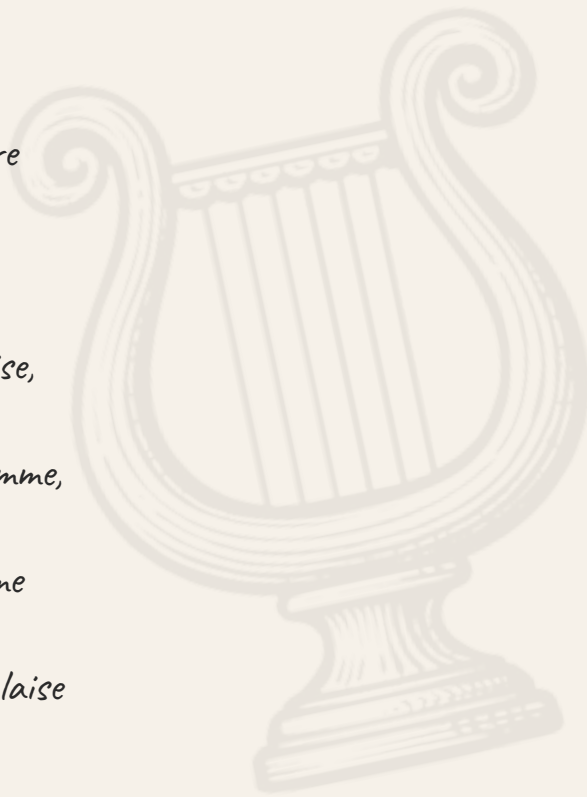 re
se,
mme,
ne
laise